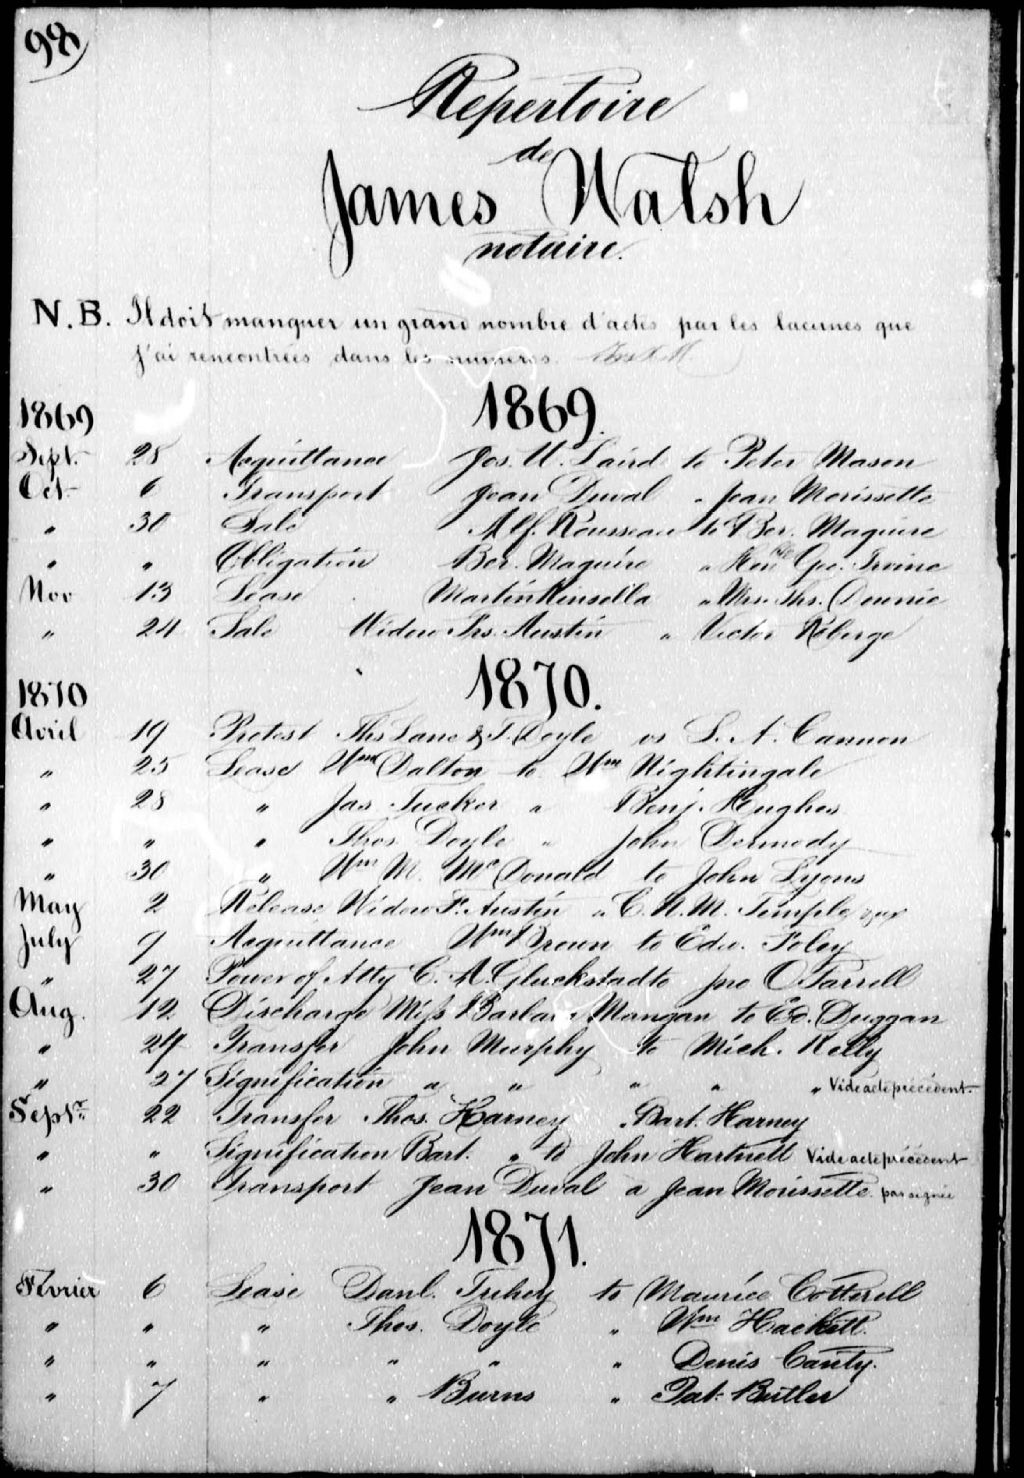 98
Repertoire
de
James Walsh
notaire.
N.B. Il doit manquer un grand nombre d'actes par les lacunes que
j'ai rencontrées dans les numeros.
1869 1869.
Sept. 28 Acquittance Jos. U. Laird to Peter Mason
Oct 6 Transport Jean Duval „ Jean Morissette
„ 30 Sale Alf. Rousseau to Ber. Maguire
„ „ Obligation Ber. Maguire „ Geo. Irvine
Nov 13 Lease Martin Kinsella „ Mrs. Ths. Dennie
„ 24 Sale Widow Frs. Austin „ Victor Roberge
1870 1870.
Avril 19 Protest Ths Lane & T. Doyle vs L. A. Cannon
„ 25 Lease Wm Dalton to Wm Nightingale
„ 28 „ Jas Tucker „ Benj. Hughes
„ „ „ Thos. Doyle „ John Dermody
„ 30 „ Wm M. McDonald to John Lyons
May 2 Release Widow F. Austin „ E. H. M. Temple
July 9 Acquittance Wm Brown to Edw. Foley
„ 27 Power of Atty C. A. Gluckstad to Jno O'Farrell
Aug. 12 Discharge Miss Barbara Mangan to Ed. Duggan
„ 24 Transfer John Murphy to Mich. Kelly
„ 27 Signification „ „ „ „ „ Vide acte précédent
Septr 22 Transfer Thos. Harney „ Bart. Harney
„ „ Signification Bart. „ to John Hartnett Vide acte précédent
„ 30 Transport Jean Duval a Jean Morissette pas signée
1871.
Février 6 Lease Danl. Trihey to Maurice Cotterell
„ „ „ Thos. Doyle „ Wm Hackett.
„ „ „ „ „ „ Denis Canty.
„ 7 „ „ Burns „ Pat. Butler